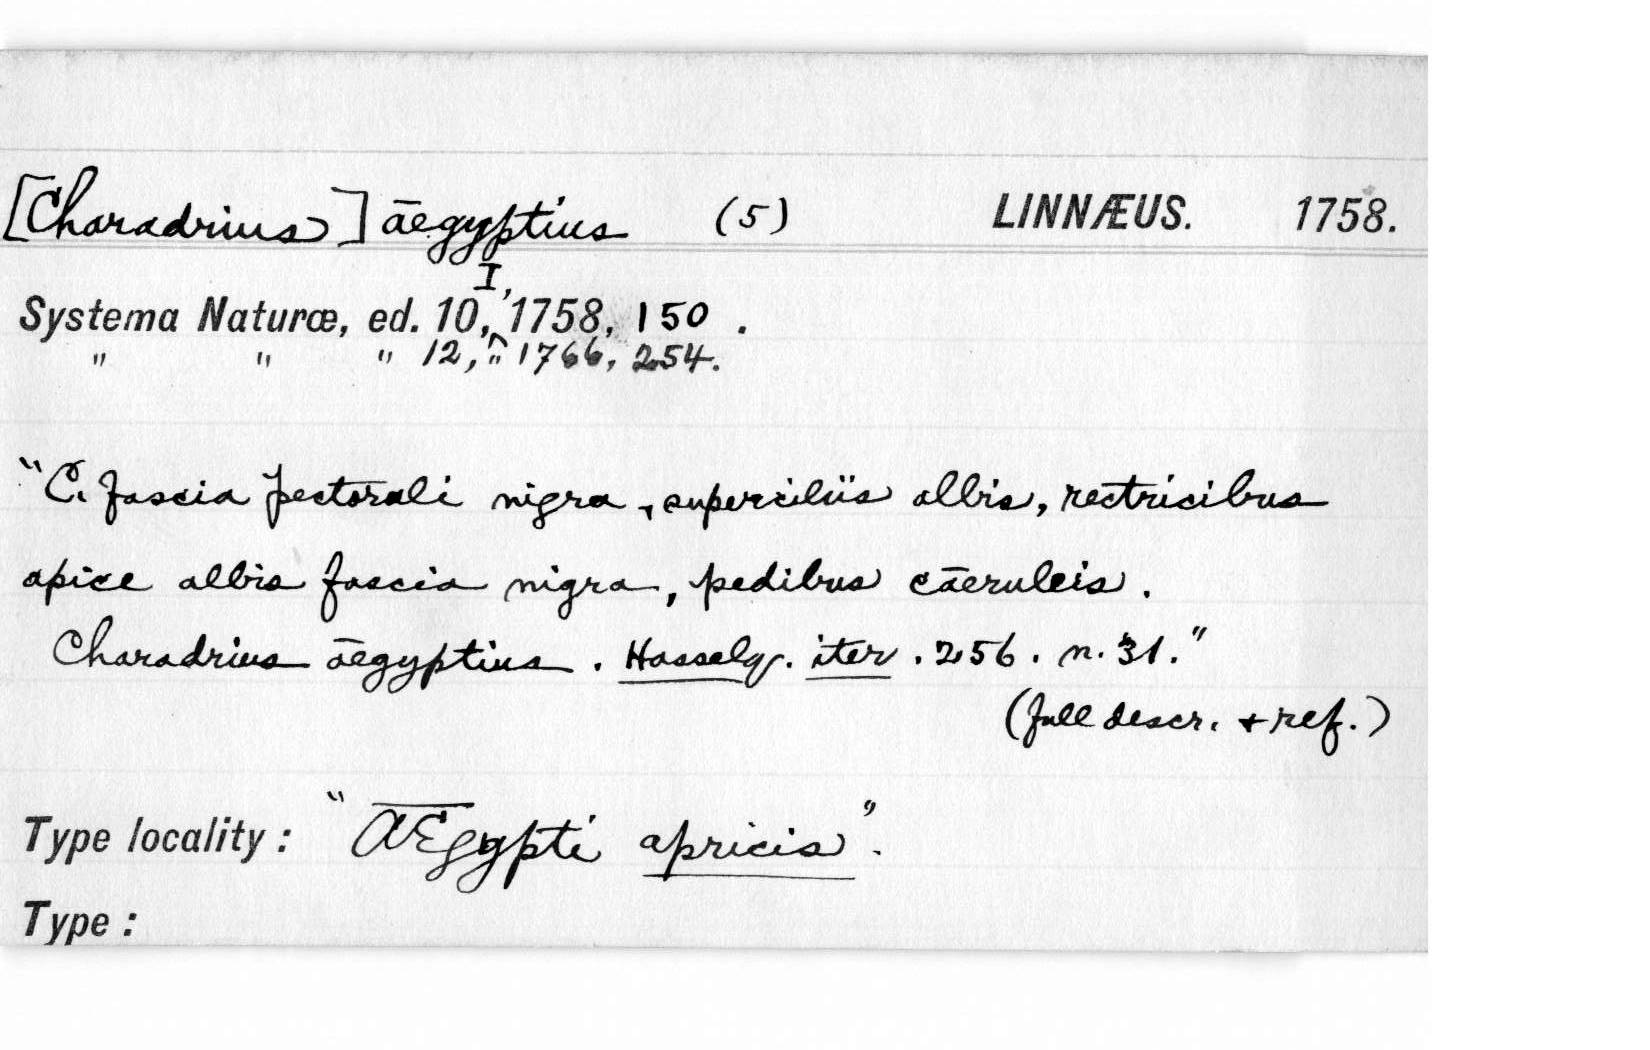 [Charadrius] āegyptius (5) LINNÆUS. 1758.
Systema Naturæ, ed. 10, I, 1758, 150 .
" " " 12, " 1766, 254.
"C. fascia pectorali nigra, superciliis albis, rectricibus
apice albis fascia nigra, pedibus cāeruleis.
Charadrius āegyptius. Hasselq. iter. 256. n. 31."
(full descr. + ref.)
Type locality: "ÆGypti apricis".
Type: